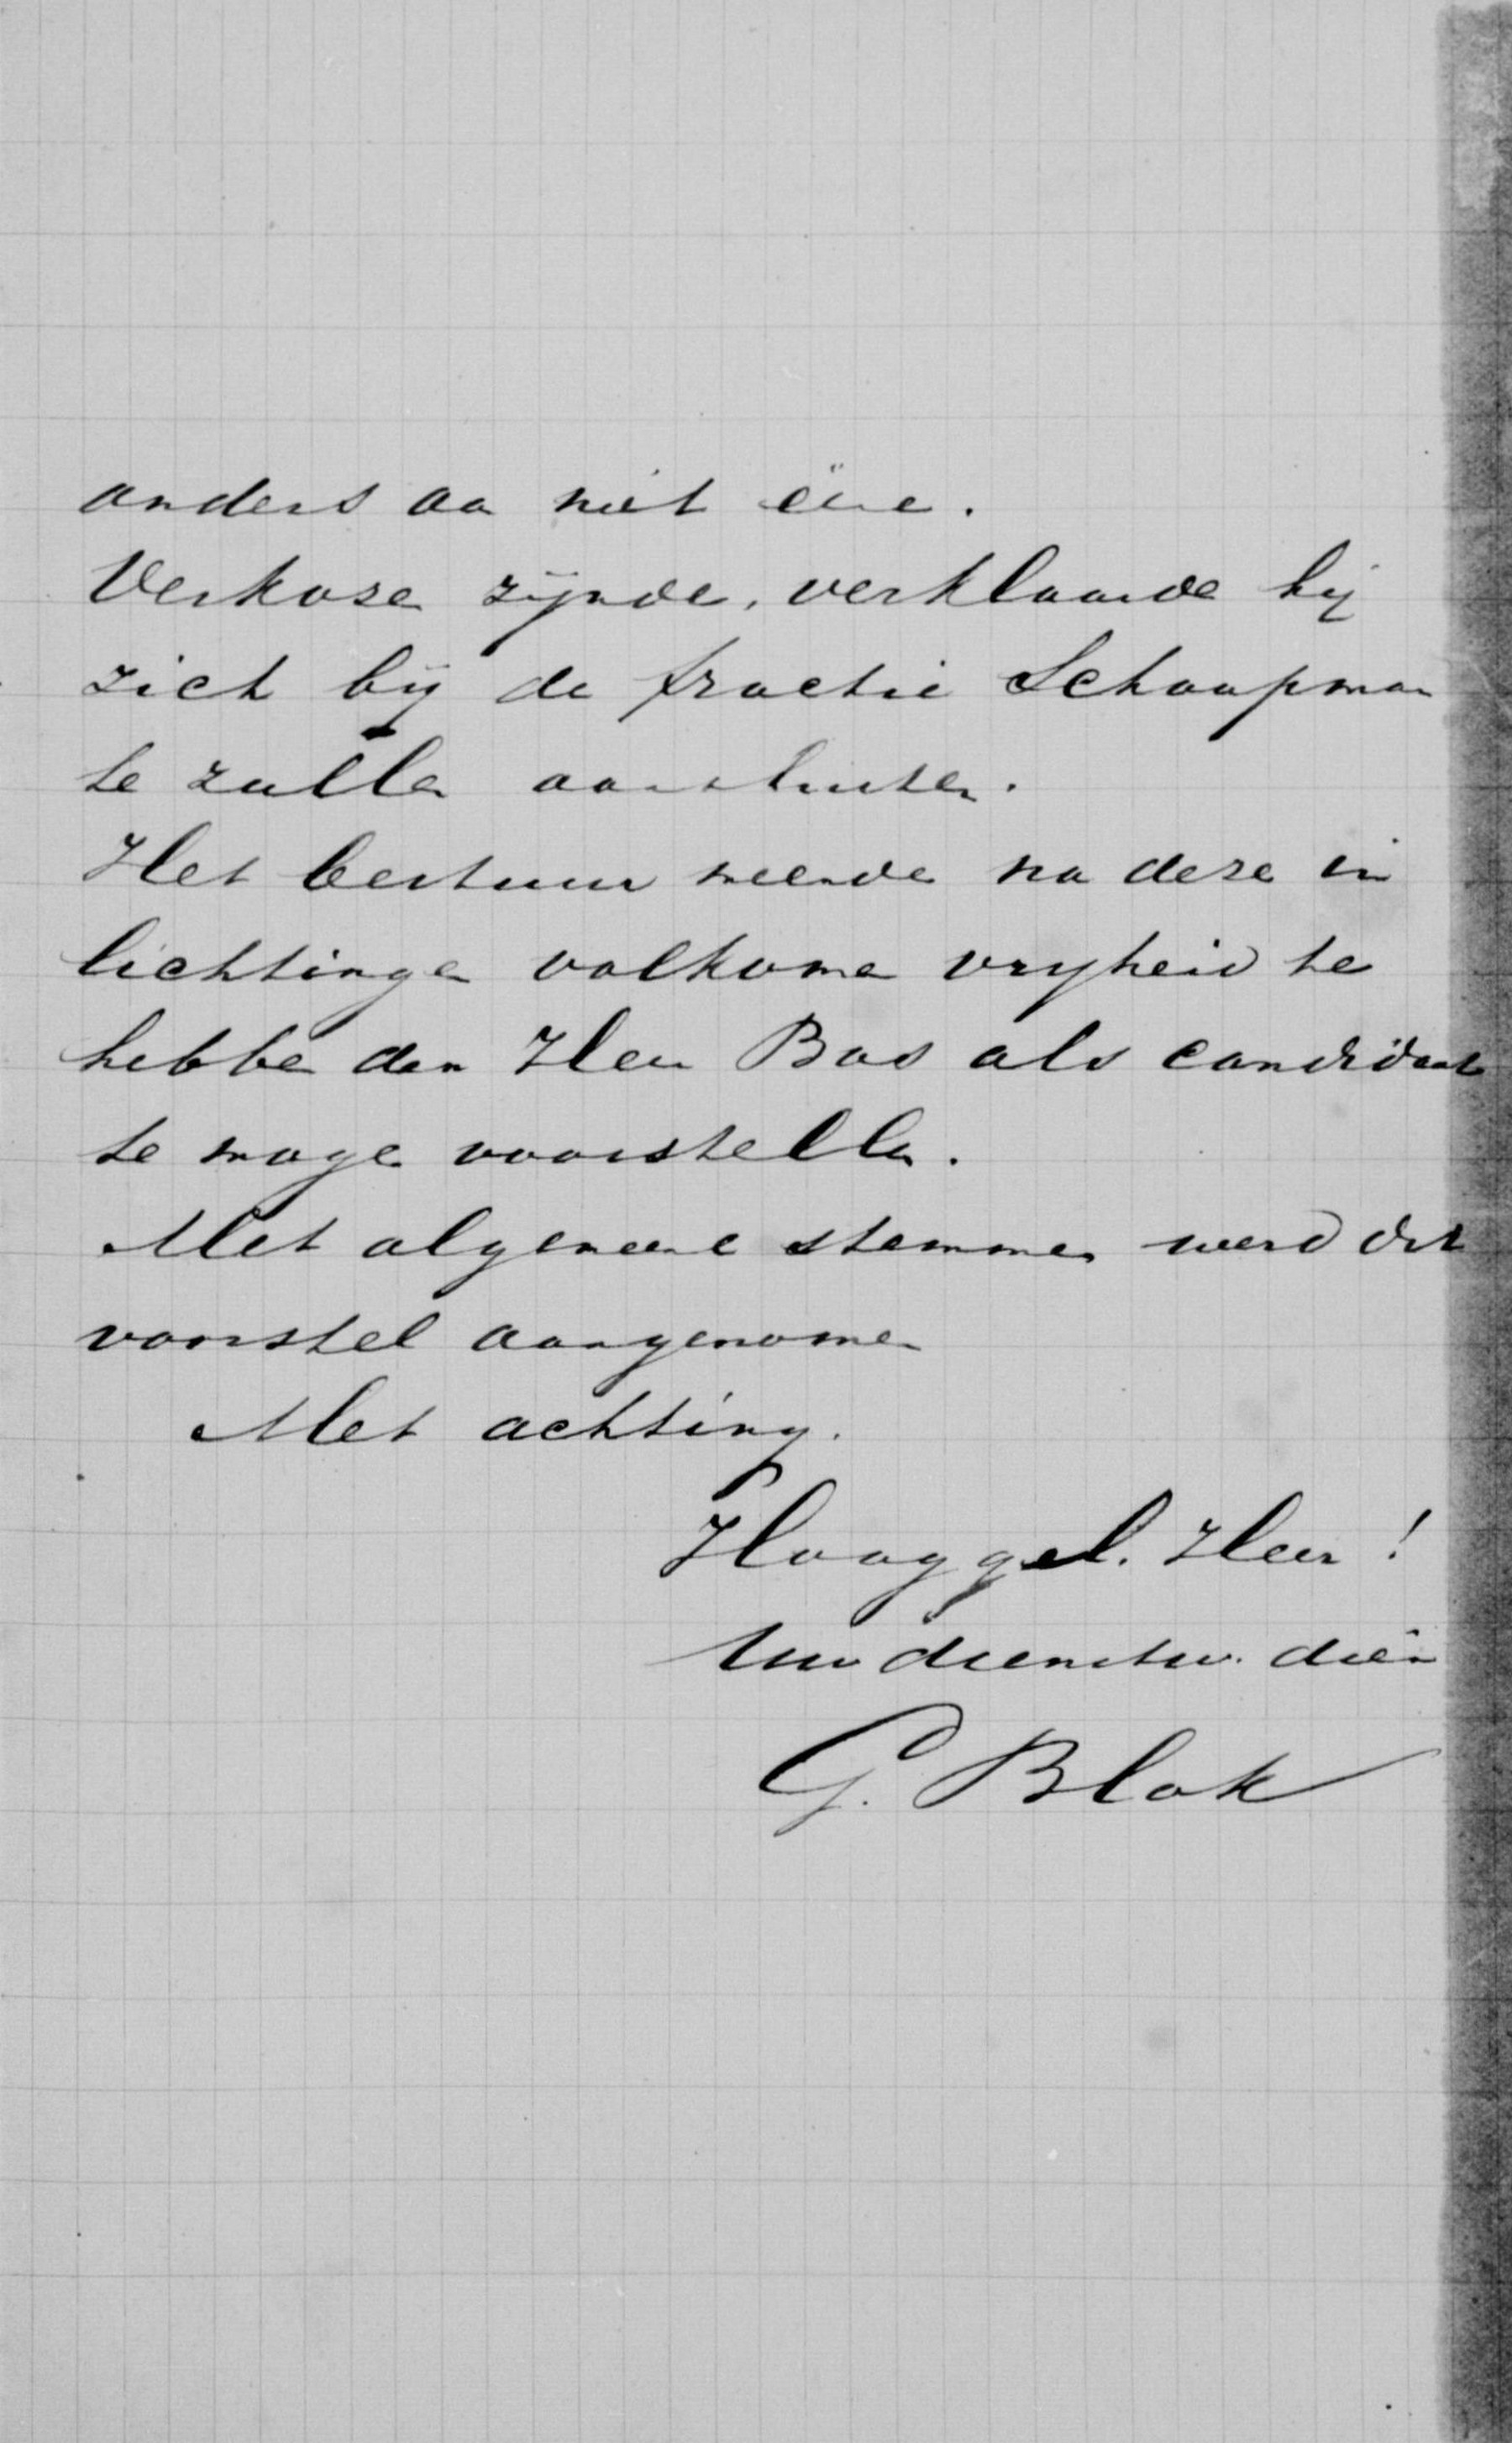 anders aan niet ëëne.
Verkozen zijnde, verklaarde hij
zich bij de fractie Schaapman
te zullen aansluiten.
Het bestuur meende na deze in
lichtingen volkomen vryheid te
hebben den Heer Bas als candidaat
te mogen voorstellen.
Met algemeene stemmen werd dit
voorstel aangenomen
Met achting.
Hooggel. Heer!
Uw dienstw. dien
G. Blok